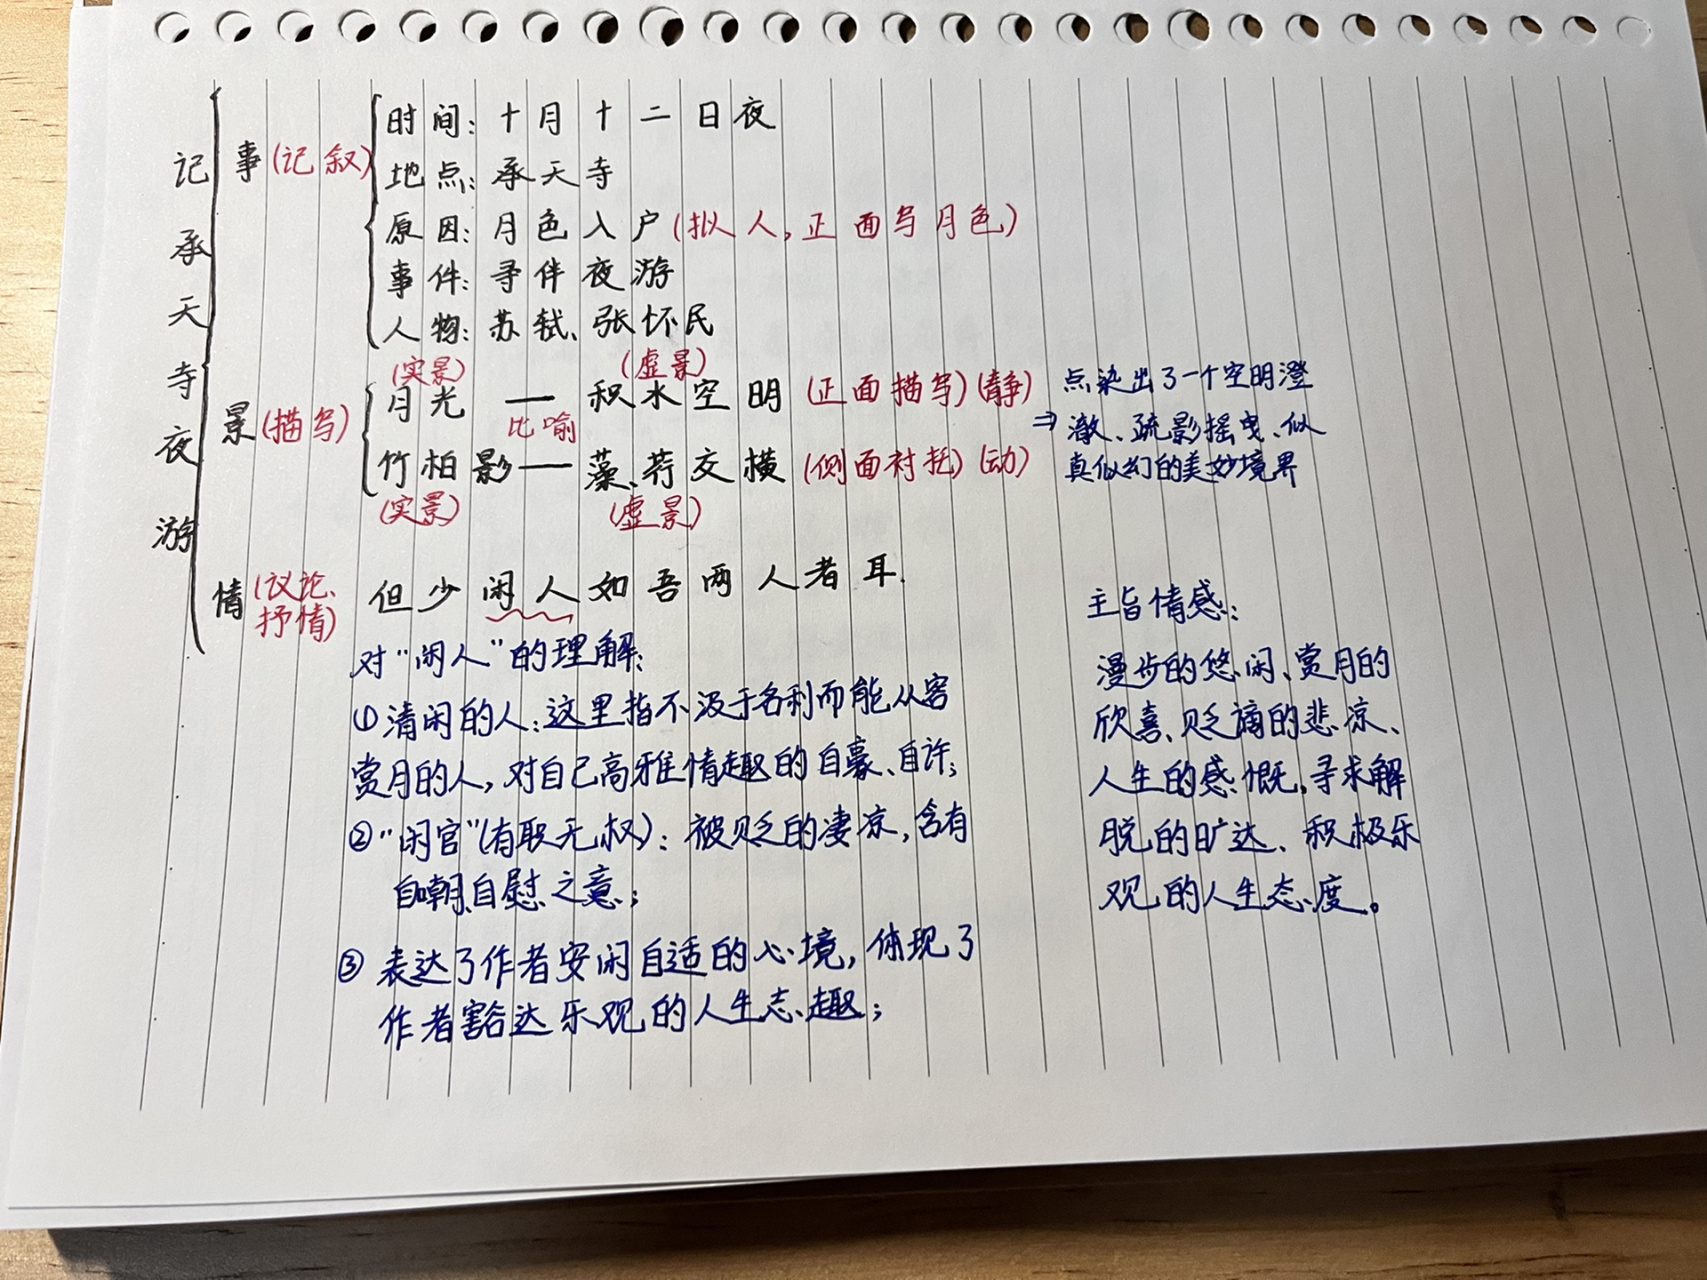 记承天寺夜游
事(记叙)
时间:十月十二日夜
地点:承天寺
原因:月色入户(拟人,正面写月色)
事件:寻伴夜游
人物:苏轼、张怀民
景(描写)
(实景) (虚景)
月光——积水空明(正面描写)(静)
比喻
竹柏影——藻、荇交横(侧面衬托)(动)
(实景) (虚景)
点染出了一个空明澄
⇒澈、疏影摇曳、似
真似幻的美妙境界
情(议论、
抒情)
但少闲人如吾两人者耳.
对“闲人”的理解:
①清闲的人:这里指不汲于名利而能从容
赏月的人,对自己高雅情趣的自豪、自许;
②“闲官”(有职无权):被贬的凄凉,含有
自嘲自慰之意;
③表达了作者安闲自适的心境,体现了
作者豁达乐观的人生志趣;
主旨情感:
漫步的悠闲、赏月的
欣喜、贬谪的悲凉、
人生的感慨,寻求解
脱的旷达、积极乐
观的人生态度。